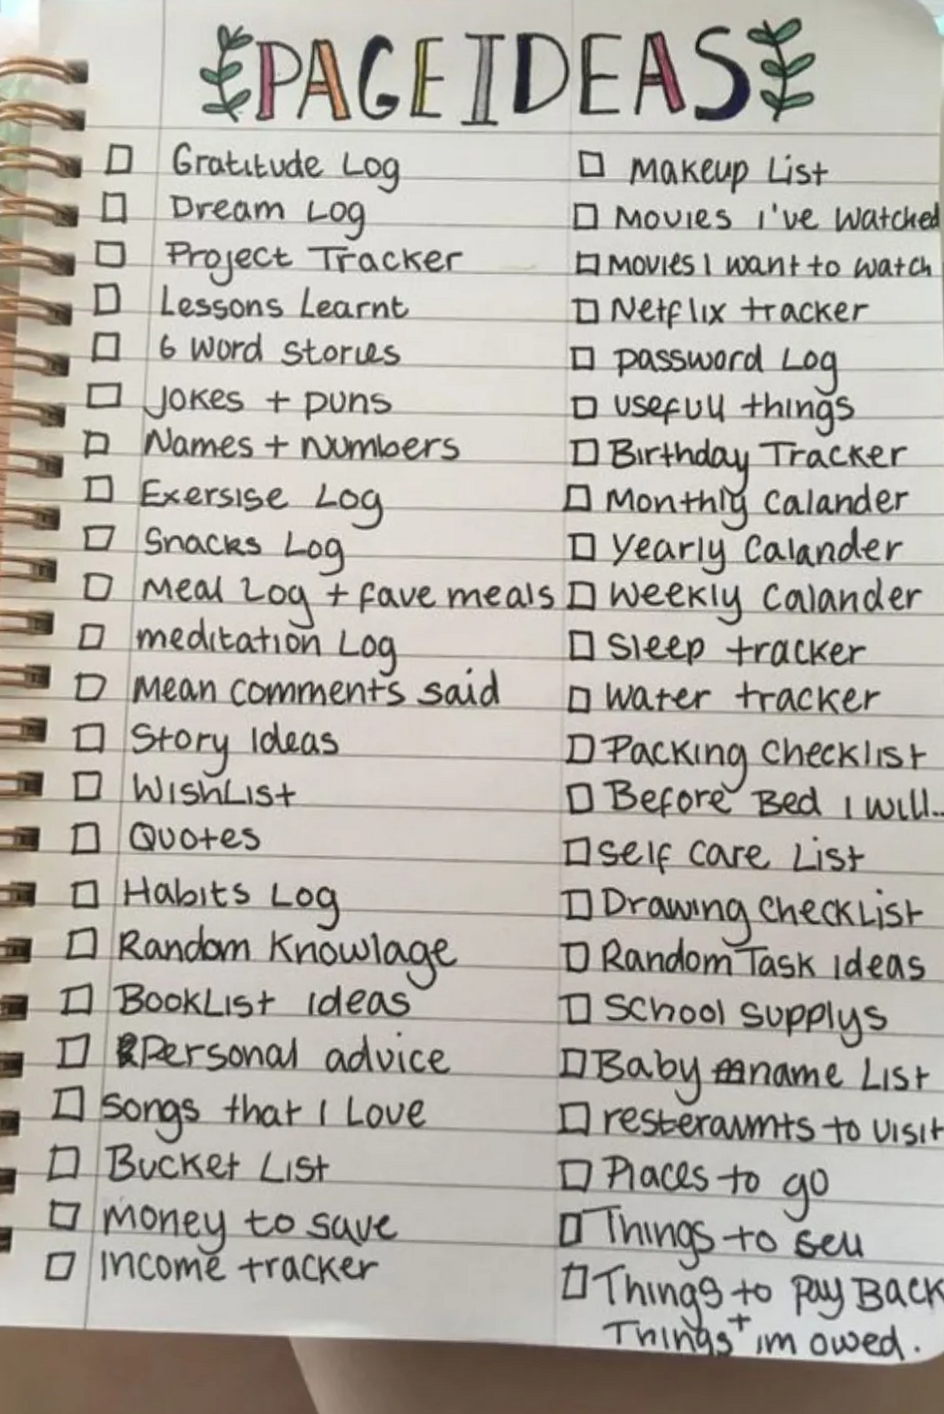 PAGE IDEAS
Gratitude Log
Dream Log
Project Tracker
Lessons Learnt
6 word stories
Jokes + puns
Names + numbers
Exersise Log
Snacks Log
Meal Log + fave meals
meditation Log
Mean comments said
Story Ideas
WishList
Quotes
Habits Log
Random Knowlage
BookList ideas
Personal advice
songs that I Love
Bucket List
money to save
income tracker
Makeup List
Movies I've watched
Movies I want to watch
Netflix tracker
password Log
usefull things
Birthday Tracker
Monthly Calander
Yearly Calander
Weekly Calander
Sleep tracker
water tracker
Packing Checklist
Before Bed I will..
self care List
Drawing CheckList
Random Task Ideas
School supplys
Baby name List
resteraunts to visit
Places to go
Things to sell
Things to pay Back
Things + im owed.